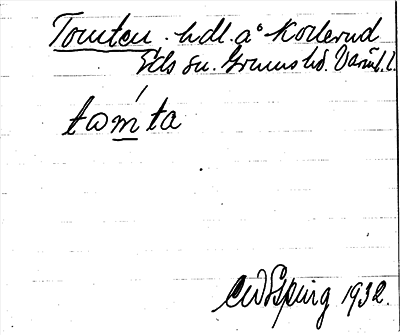 Tomten. hdl. å Kollerud
Eds sn. Grums hd. Värml. l.
tam̲ta
1932.